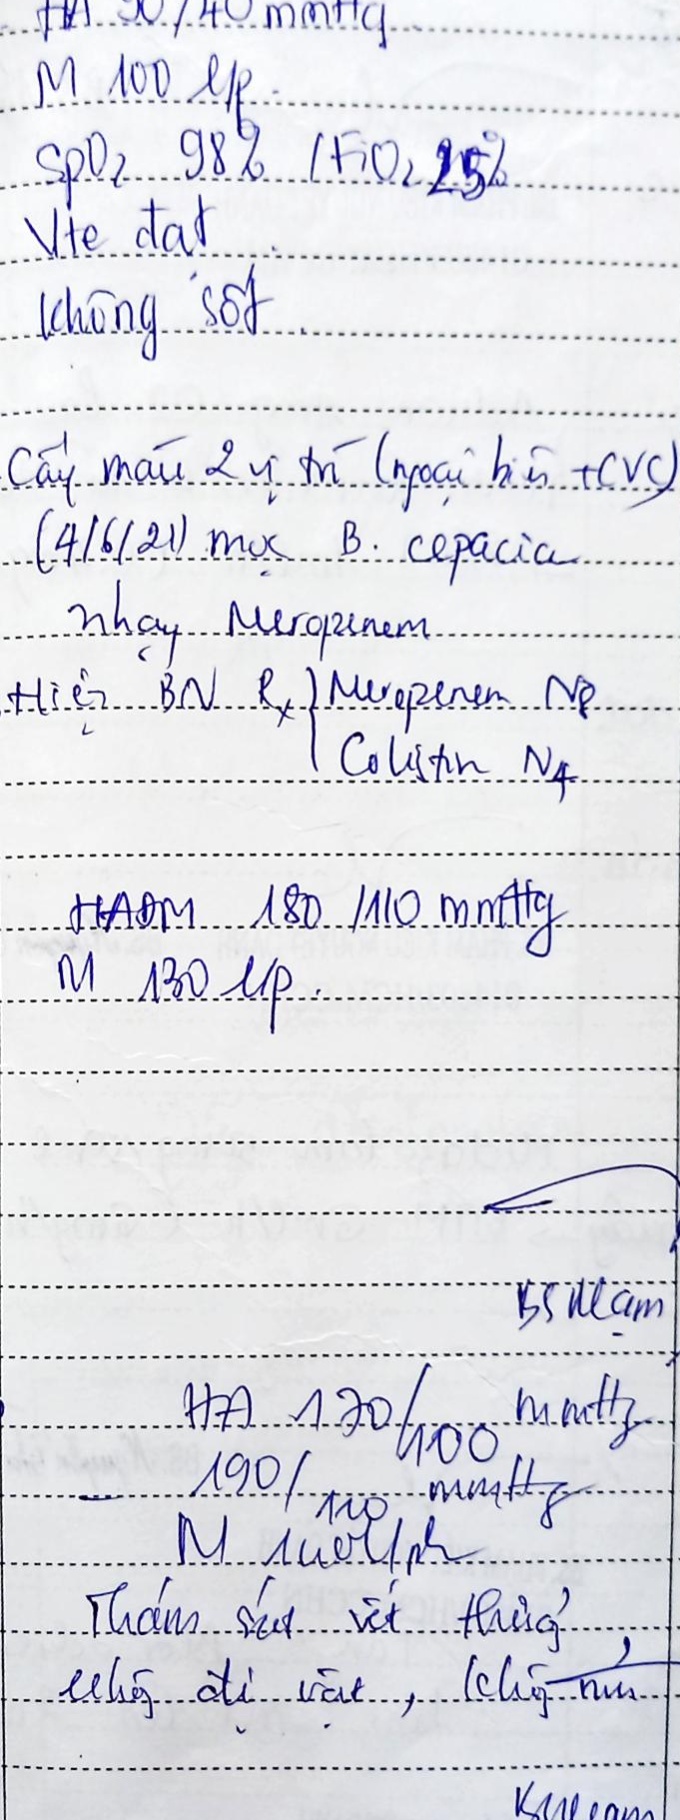 HA 90/40 mmHg
M 100 l/p.
SpO2 98% /FiO2 25%
Vte đạt
Không sốt.
Cấy máu 2 vị trí (ngoại biên + CVC)
(4/6/21) mọc B. cepacia
nhạy Meropenem
Hiện BN Rx } Meropenem N8
Colistin N4
HAĐM 180/110 mmHg
M 130 l/p.
BS
HA 170/100 mmHg
190/110 mmHg
M 140 l/ph
Thám sát vết thủng
dị vật,